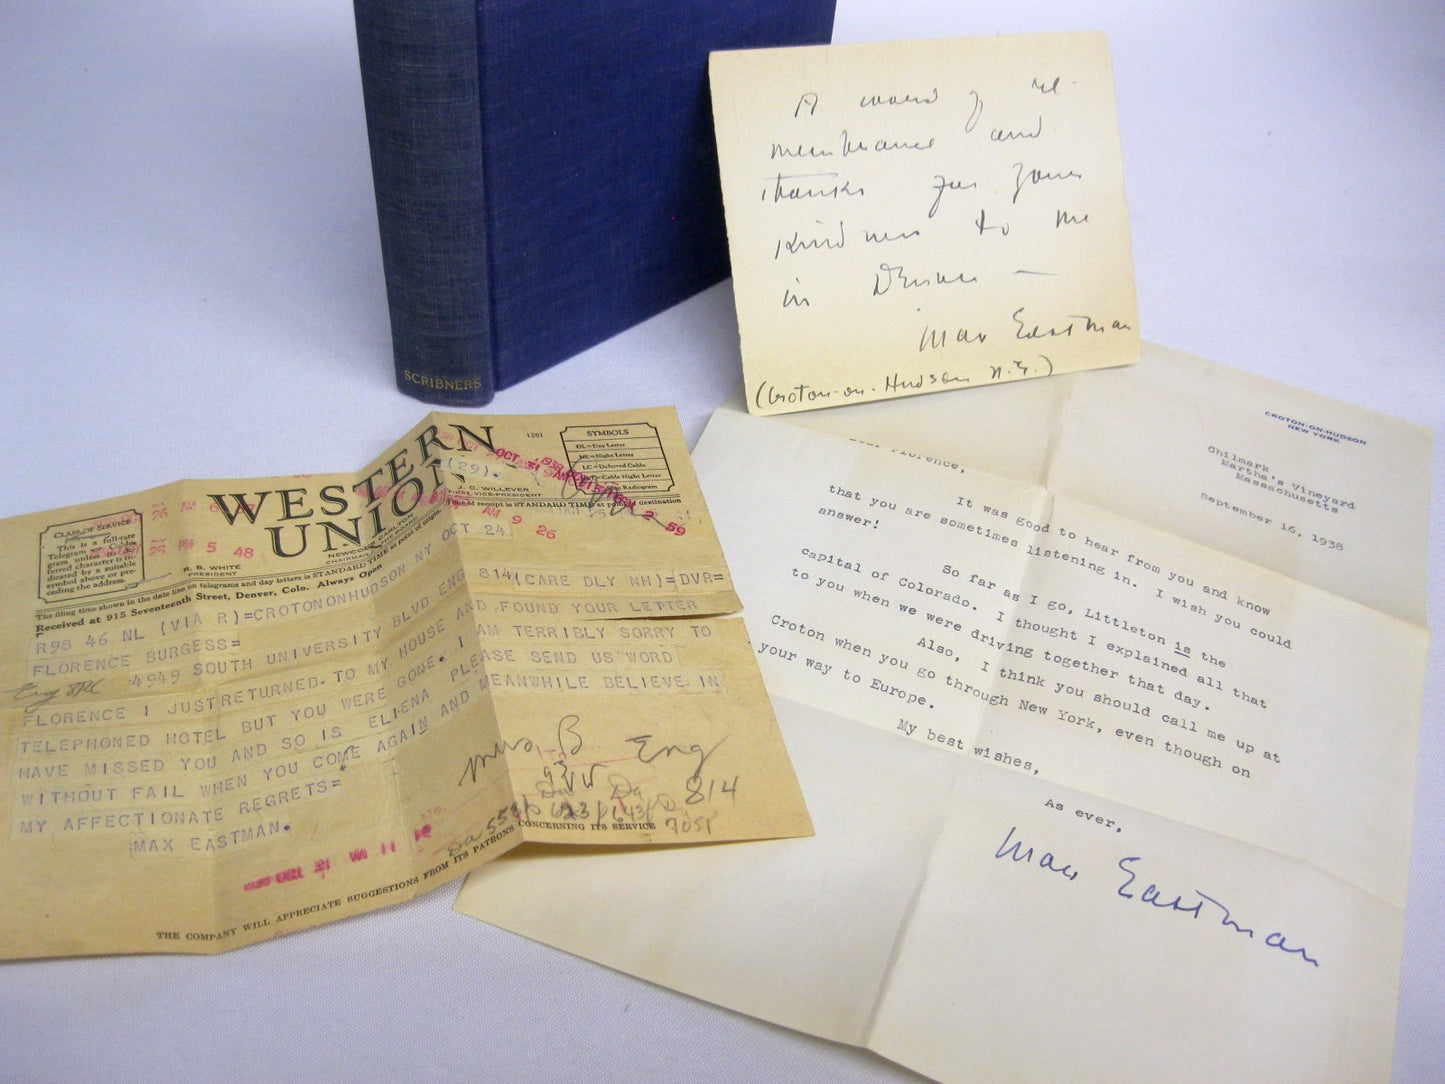 SCRIBNERS
A word of re-
membrance and
thanks for your
kindness to me
in Denver —
Max Eastman
(Croton-on-Hudson N.Y.)
WESTERN
UNION
1201
SYMBOLS
DL=Day Letter
NL=Night Letter
LC=Deferred Cable
Cable Night Letter
Radiogram
(29).
CLASS OF SERVICE
This is a full-rate
Telegram
unless its
ferred character is in-
dicated by a suitable
symbol above or pre-
ceding the address.
R. B. WHITE
PRESIDENT
NEWCOMB CARLTON
CHAIRMAN OF THE BOARD
J. C. WILLEVER
FIRST VICE-PRESIDENT
The filing time shown in the date line on telegrams and day letters is STANDARD TIME at point of origin. Time of receipt is STANDARD TIME at point of destination
Received at 915 Seventeenth Street, Denver, Colo. Always Open
R98 46 NL (VIA R)=CROTONONHUDSON NY OCT 24
FLORENCE BURGESS=
4949 SOUTH UNIVERSITY BLVD ENG 814(CARE DLY NH)=DVR=
FLORENCE I JUST RETURNED TO MY HOUSE AND FOUND YOUR LETTER
TELEPHONED HOTEL BUT YOU WERE GONE. I AM TERRIBLY SORRY TO
HAVE MISSED YOU AND SO IS ELIENA PLEASE SEND US WORD
WITHOUT FAIL WHEN YOU COME AGAIN AND MEANWHILE BELIEVE IN
MY AFFECTIONATE REGRETS=
MAX EASTMAN.
Mrs B Eng
814
THE COMPANY WILL APPRECIATE SUGGESTIONS FROM ITS PATRONS CONCERNING ITS SERVICE
CROTON-ON-HUDSON
NEW YORK
Chilmark
Martha's Vineyard
Massachusetts
September 16, 1938
Dear Florence,
It was good to hear from you and know
that you are sometimes listening in. I wish you could
answer!
So far as I go, Littleton is the
capital of Colorado. I thought I explained all that
to you when we were driving together that day.
Also, I think you should call me up at
Croton when you go through New York, even though on
your way to Europe.
My best wishes,
As ever,
Max Eastman